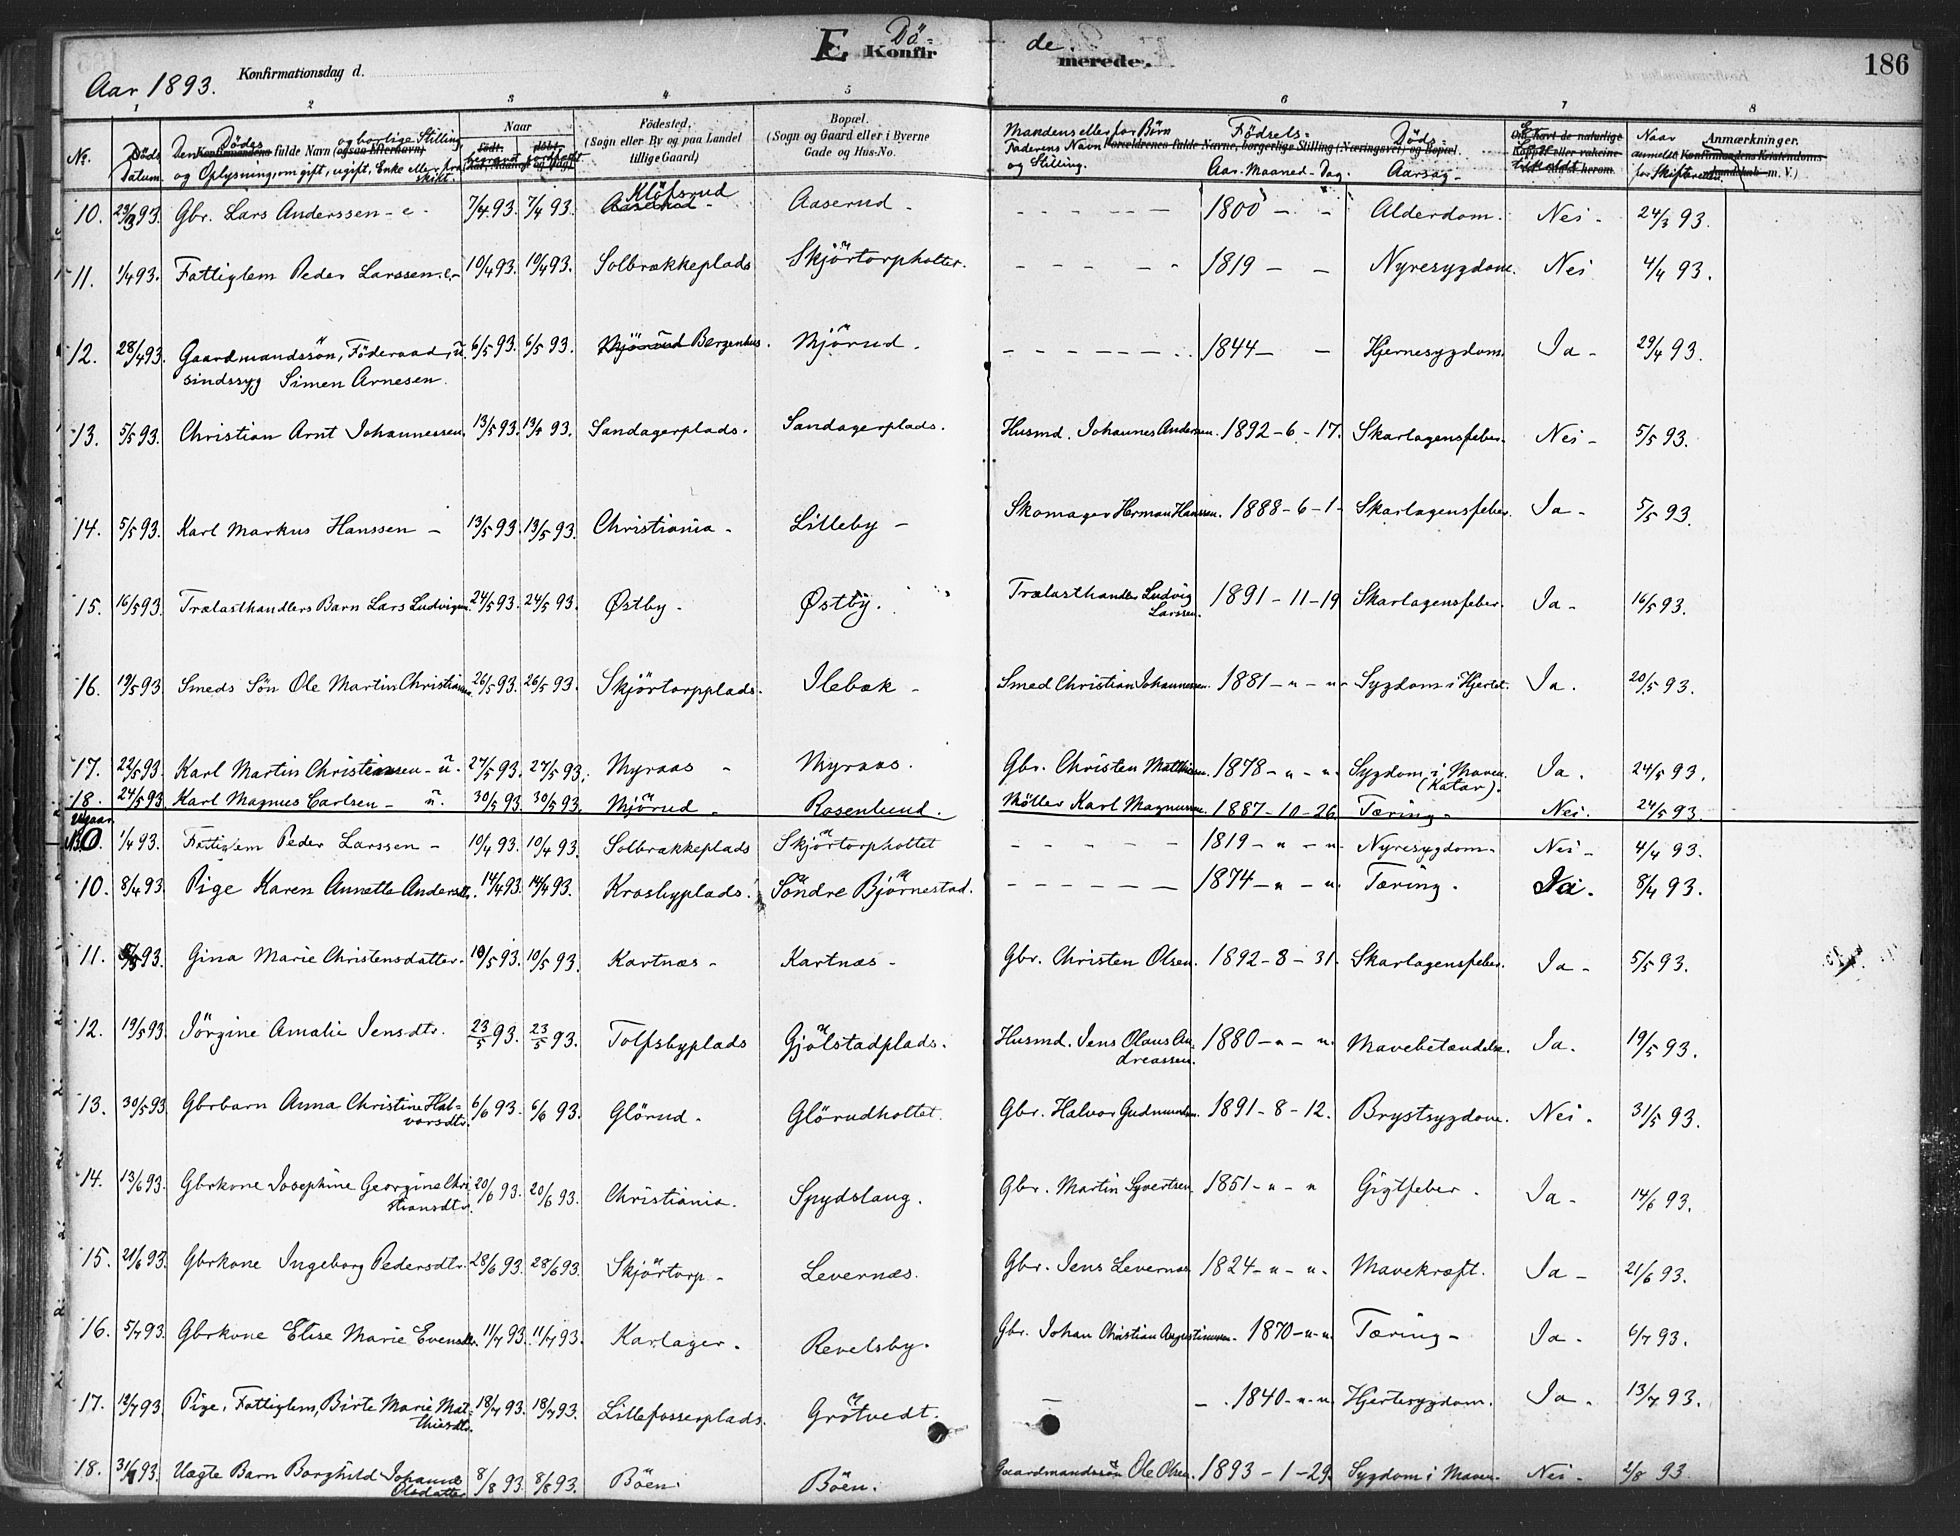 E Dö- de.
Konfirmerede. 186
Aar 1893. Konfirmationsdag d.
1 2 3 4 5 6 7 8
No. Döds Datum. Den Dödes fulde Navn (ogsaa Efternavn) og borlige Stilling, og Oplysning, om gift, ugift, Enke eller fraskilt. Naar Födested, (Sogn eller By og paa Landet tillige Gaard) Bopæl. (Sogn og Gaard eller i Byerne Gade og Hus-No. Mandens eller for Börn Faderens Navn og Stilling. Födsels- Aar. Maaned. Dag. Döds- Aarsag. Naar anmeldt for Skifteretten. Anmærkninger.
10. 23/3 93. Gbr. Lars Anderssen - e - 7/4 93. 7/4 93. Aaserud Klöfsrud - Aaserud - - - - - - 1800 - - Alderdom. Nei - 24/3 93.
11. 1/4 93. Fattiglem Peder Larssen. e. - 10/4 93. 10/4 93. Solbrækkeplads Skjörtorpholtet. - - - - - 1819 - - Nyresygdom. Nei 4/4 93.
12. 28/4 93. Gaardmandssön, Föderaad, u. sindssyg Simen Arnesen. 6/5 93. 6/5 93. Mjörud Bergenhus. Mjörud. - - - - - - 1844 - - Hjernesygdom. Ja - 29/4 93.
13. 5/5 93. Christian Arnt Johannessen. 13/5 93. 13/5 93. Sandagerplads. Sandagerplads. Husmd. Johannes Andersen. 1892 - 6 - 17. Skarlagensfeber. Nei - 5/5 93.
14. 5/5 93. Karl Markus Hanssen - 13/5 93. 13/5 93. Christiania - Lilleby - Skomager Herman Hanssen. 1888 - 6 - 1 - Skarlagensfeber. Ja - 5/5 93.
15. 16/5 93. Trælasthandlers Barn Lars Ludvigsen. 24/5 93. 24/5 93. Østby - Østby. Trælasthandler Ludvig Larssen. 1891 - 11 - 19 Skarlagensfeber. Ja - 16/5 93.
16. 19/5 93 Smeds Sön Ole Martin Christiansen 26/5 93. 26/5 93. Skjörtorpplads. Ilebæk - Smed Christian Johannessen. 1881 - " - " - Sygdom i Hjertet. Ja. 20/5 93.
17. 22/5 93. Karl Martin Christiansen - u. 27/5 93. 27/5 93. Myraas - Myraas. Gbr. Christen Mathisen. 1878 - " - ". Sygdom i Maven (Katar). Ja. 24/5 93.
18. 24/5 93 Karl Magnus Carlsen - u. 30/5 93 30/5 93. Mjörud - Rosenlund. Möller Karl Magnussen. 1887 - 10 - 26 Tæring - Nei. 24/5 93
1/4 93. Fattiglem Peder Larssen - 10/4 93. 10/4 93. Solbrækkeplads Skjörtorpholtet - - - - - 1819 - " - ". Nyresygdom - Nei - 4/4 93.
10. 8/4 93. Pige Karen Annette Andersdtr. 14/4 93. 14/4 93. Krosbyplads. Söndre Björnestad. - - - - - 1874 - " - ". Tæring. Ja. 8/4 93.
11. 5/5 93. Gina Marie Christensdatter. 10/5 93. 10/5 93. Kartnæs - Kartnæs - Gbr. Christen Olsen. 1892 - 8 - 31. Skarlagensfeber. Ja - 5/5 93.
12. 19/5 93. Jörgine Amalie Jensdtr. 23/5 93. 23/5 93. Tolfsbyplads Gjölstadplads. Husmd. Jens Olaus Andreassen. 1880 - " - ". Mavebetændelse. Ja. 19/5 93.
13. 30/5 93 Gbrbarn Anna Christine Halvorsdtr. 6/6 93. 6/6 93. Glörud - Glörudholtet. Gbr. Halvor Gudmundsen. 1891 - 8 - 12. Brystsygdom. Nei - 31/5 93.
14. 13/6 93. Gbrkone Josephine Georgine Christiansdtr. 20/6 93. 20/6 93. Christiania. Spydslaug. Gbr. Martin Syvertsen. 1851 - " - " Gigtfeber. Ja - 14/6 93.
15. 21/6 93. Gbrkone Ingeborg Pedersdtr. 28/6 93. 28/6 93. Skjörtorp - Levernæs. Gbr. Jens Levernæs 1824 - " - ". Mavekræft. Ja - 21/6 93.
16. 5/7 93. Gbrkone Elise Marie Evensdtr. 11/7 93. 11/7 93. Karlager. Revelsby. Gbr. Johan Christian Augustinussen. 1870 - " - ". Tæring - Ja - 6/7 93.
17. 12/7 93 Pige, Fattiglem, Birte Marie Mathisdtr. 18/7 93. 18/7 93. Lillefosserplads. Grötvedt. - - 1840 - " - ". Hjertesygdom. Ja - 13/7 93.
18. 31/7 93. Uægte Barn Borghild Johanne Olsdatter 8/8 93. 8/8 93. Böen. Böen. Gaardmandssön Ole Olsen. 1893 - 1 - 29. Sygdom i Maven - Nei - 2/8 93